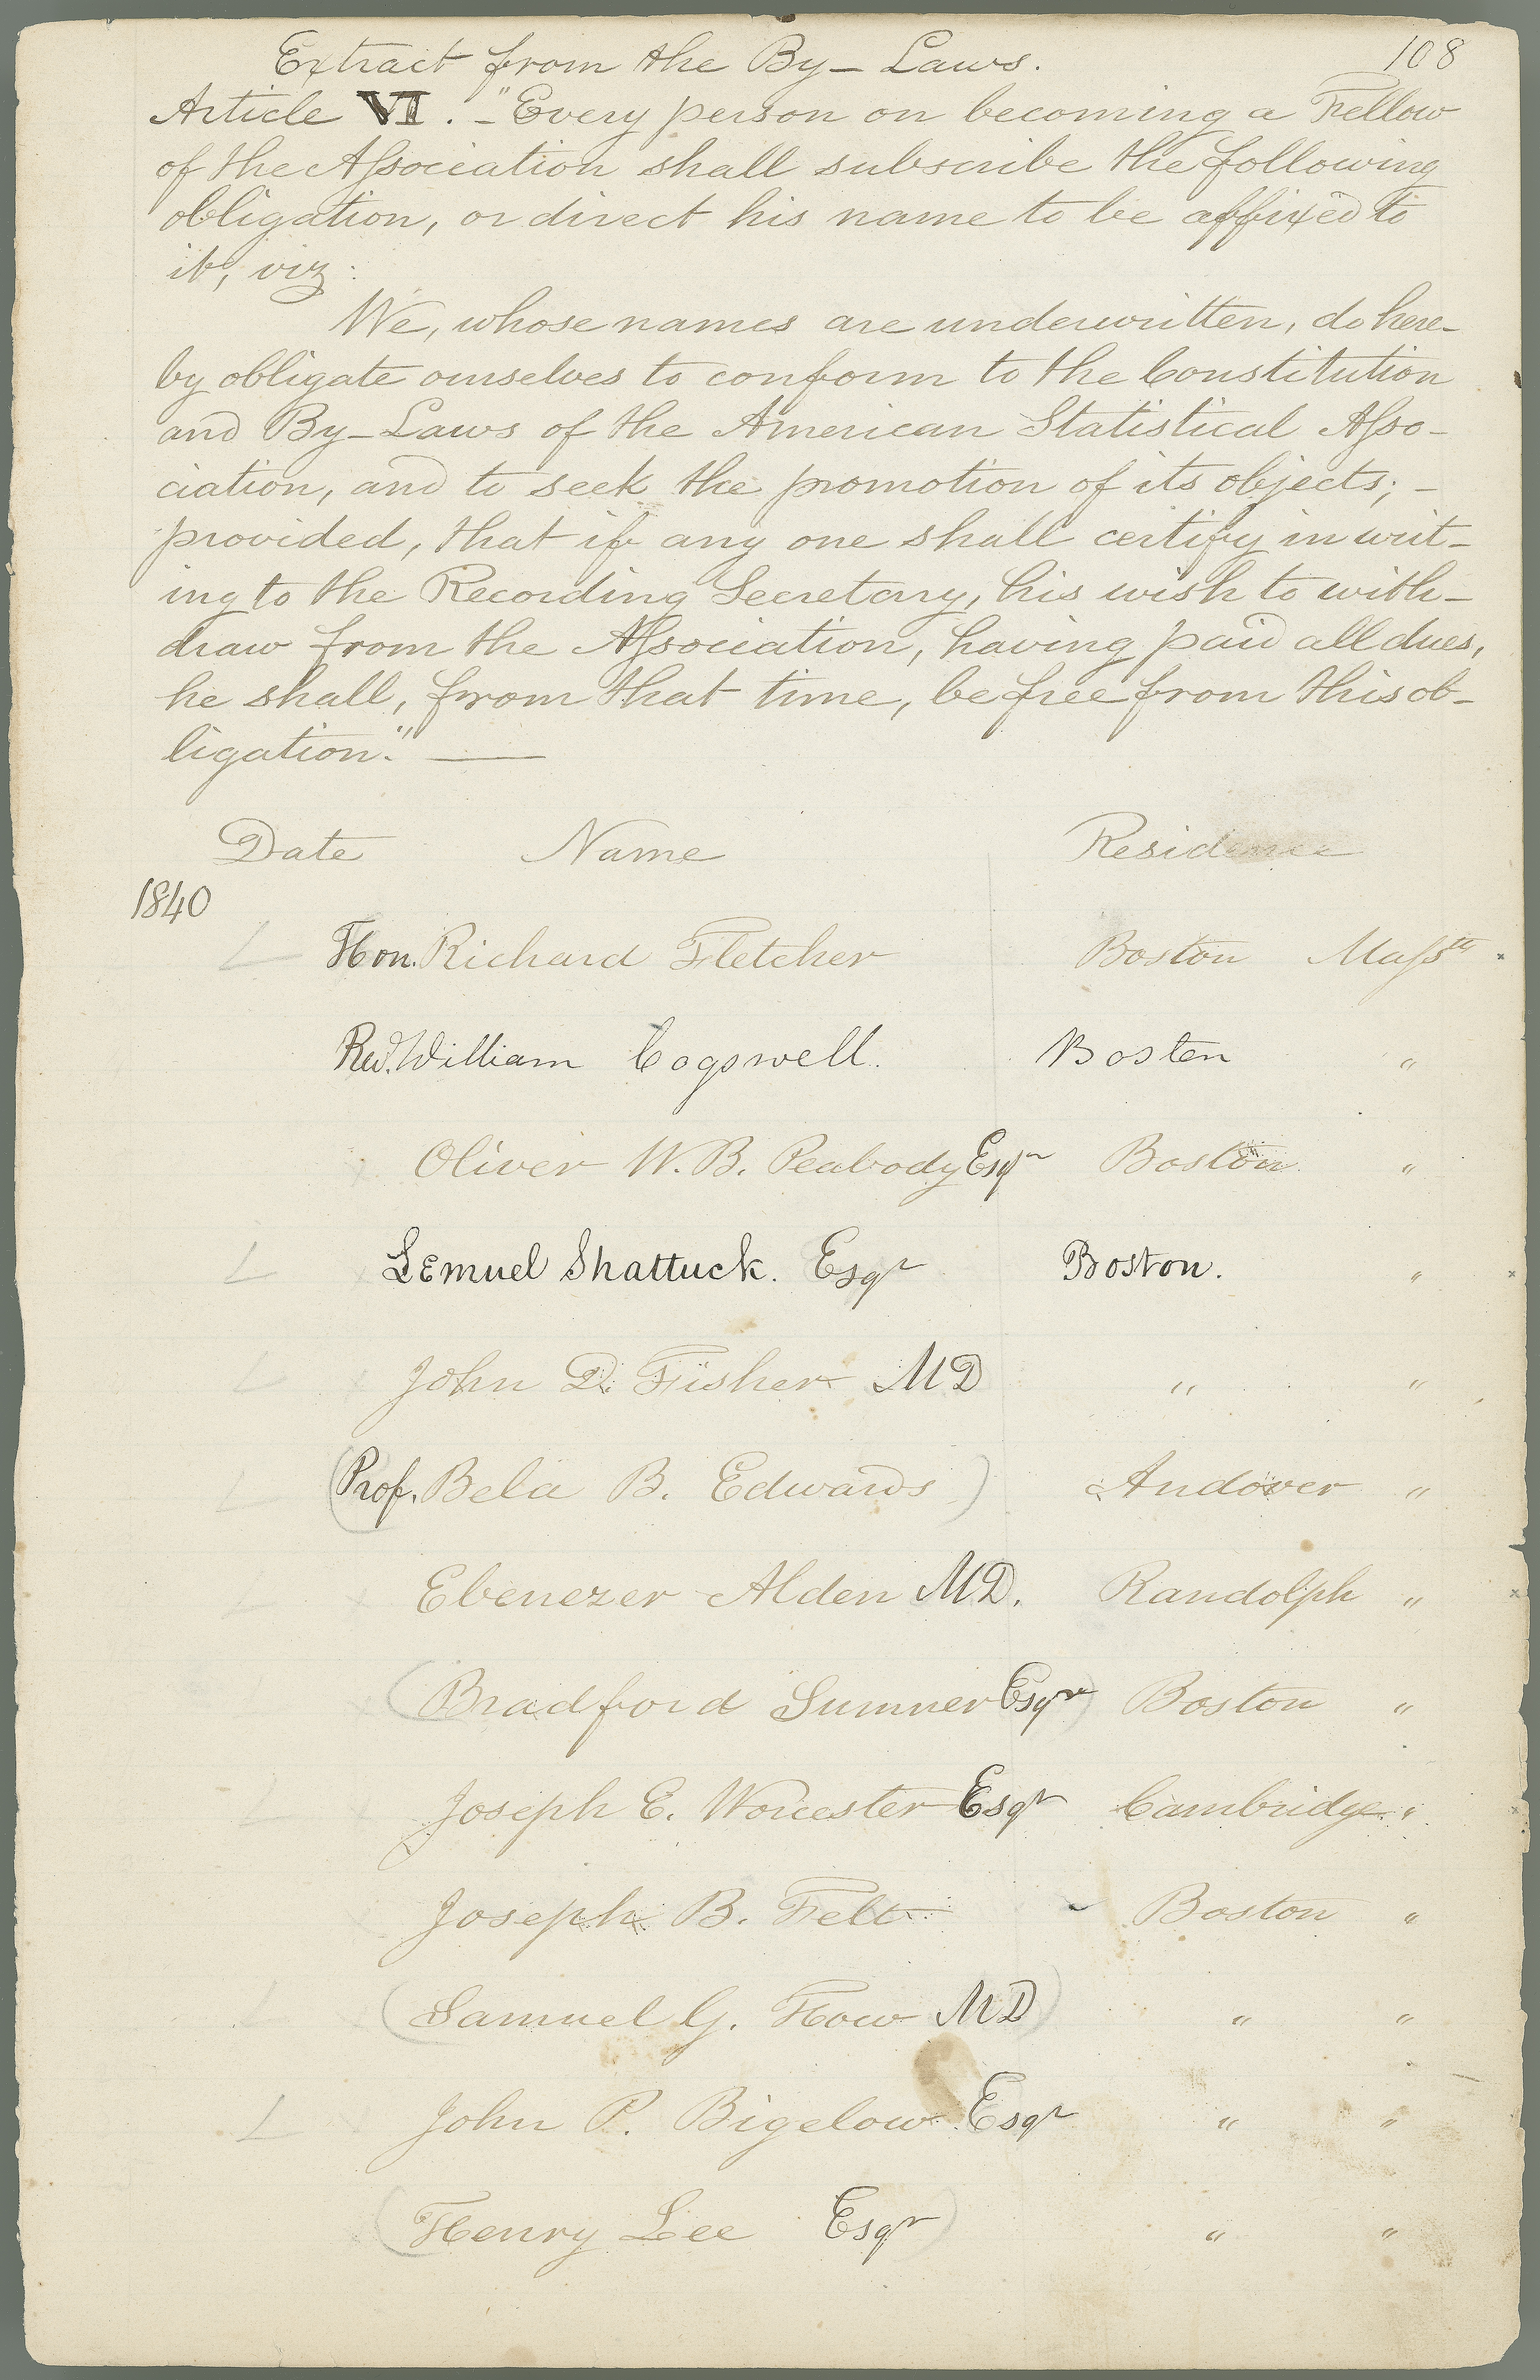 Extract from the By-Laws. 108
Article VI. - "Every person on becoming a Fellow
of the Association shall subscribe the following
obligation, or direct his name to be affixed to
it, viz:
We, whose names are underwritten, do here-
by obligate ourselves to conform to the Constitution
and By-Laws of the American Statistical Asso-
ciation, and to seek the promotion of its objects; -
provided, that if any one shall certify in writ-
ing to the Recording Secretary, his wish to with-
draw from the Association, having paid all dues,
he shall, from that time, be free from this ob-
ligation." —
Date Name Residence
1840
L Hon. Richard Fletcher Boston Massts
Revd. William Cogswell. Boston "
Oliver W. B. Peabody Esqr Boston "
L Lemuel Shattuck. Esqr Boston. "
L John D. Fisher MD " "
L (Prof. Bela B. Edwards) Andover "
L Ebenezer Alden MD. Randolph "
(Bradford Sumner Esqr) Boston "
L Joseph E. Worcester Esqr Cambridge. "
Joseph B. Felt Boston "
(Samuel G. How MD) " "
L John P. Bigelow Esqr " "
(Henry Lee Esqr) " "